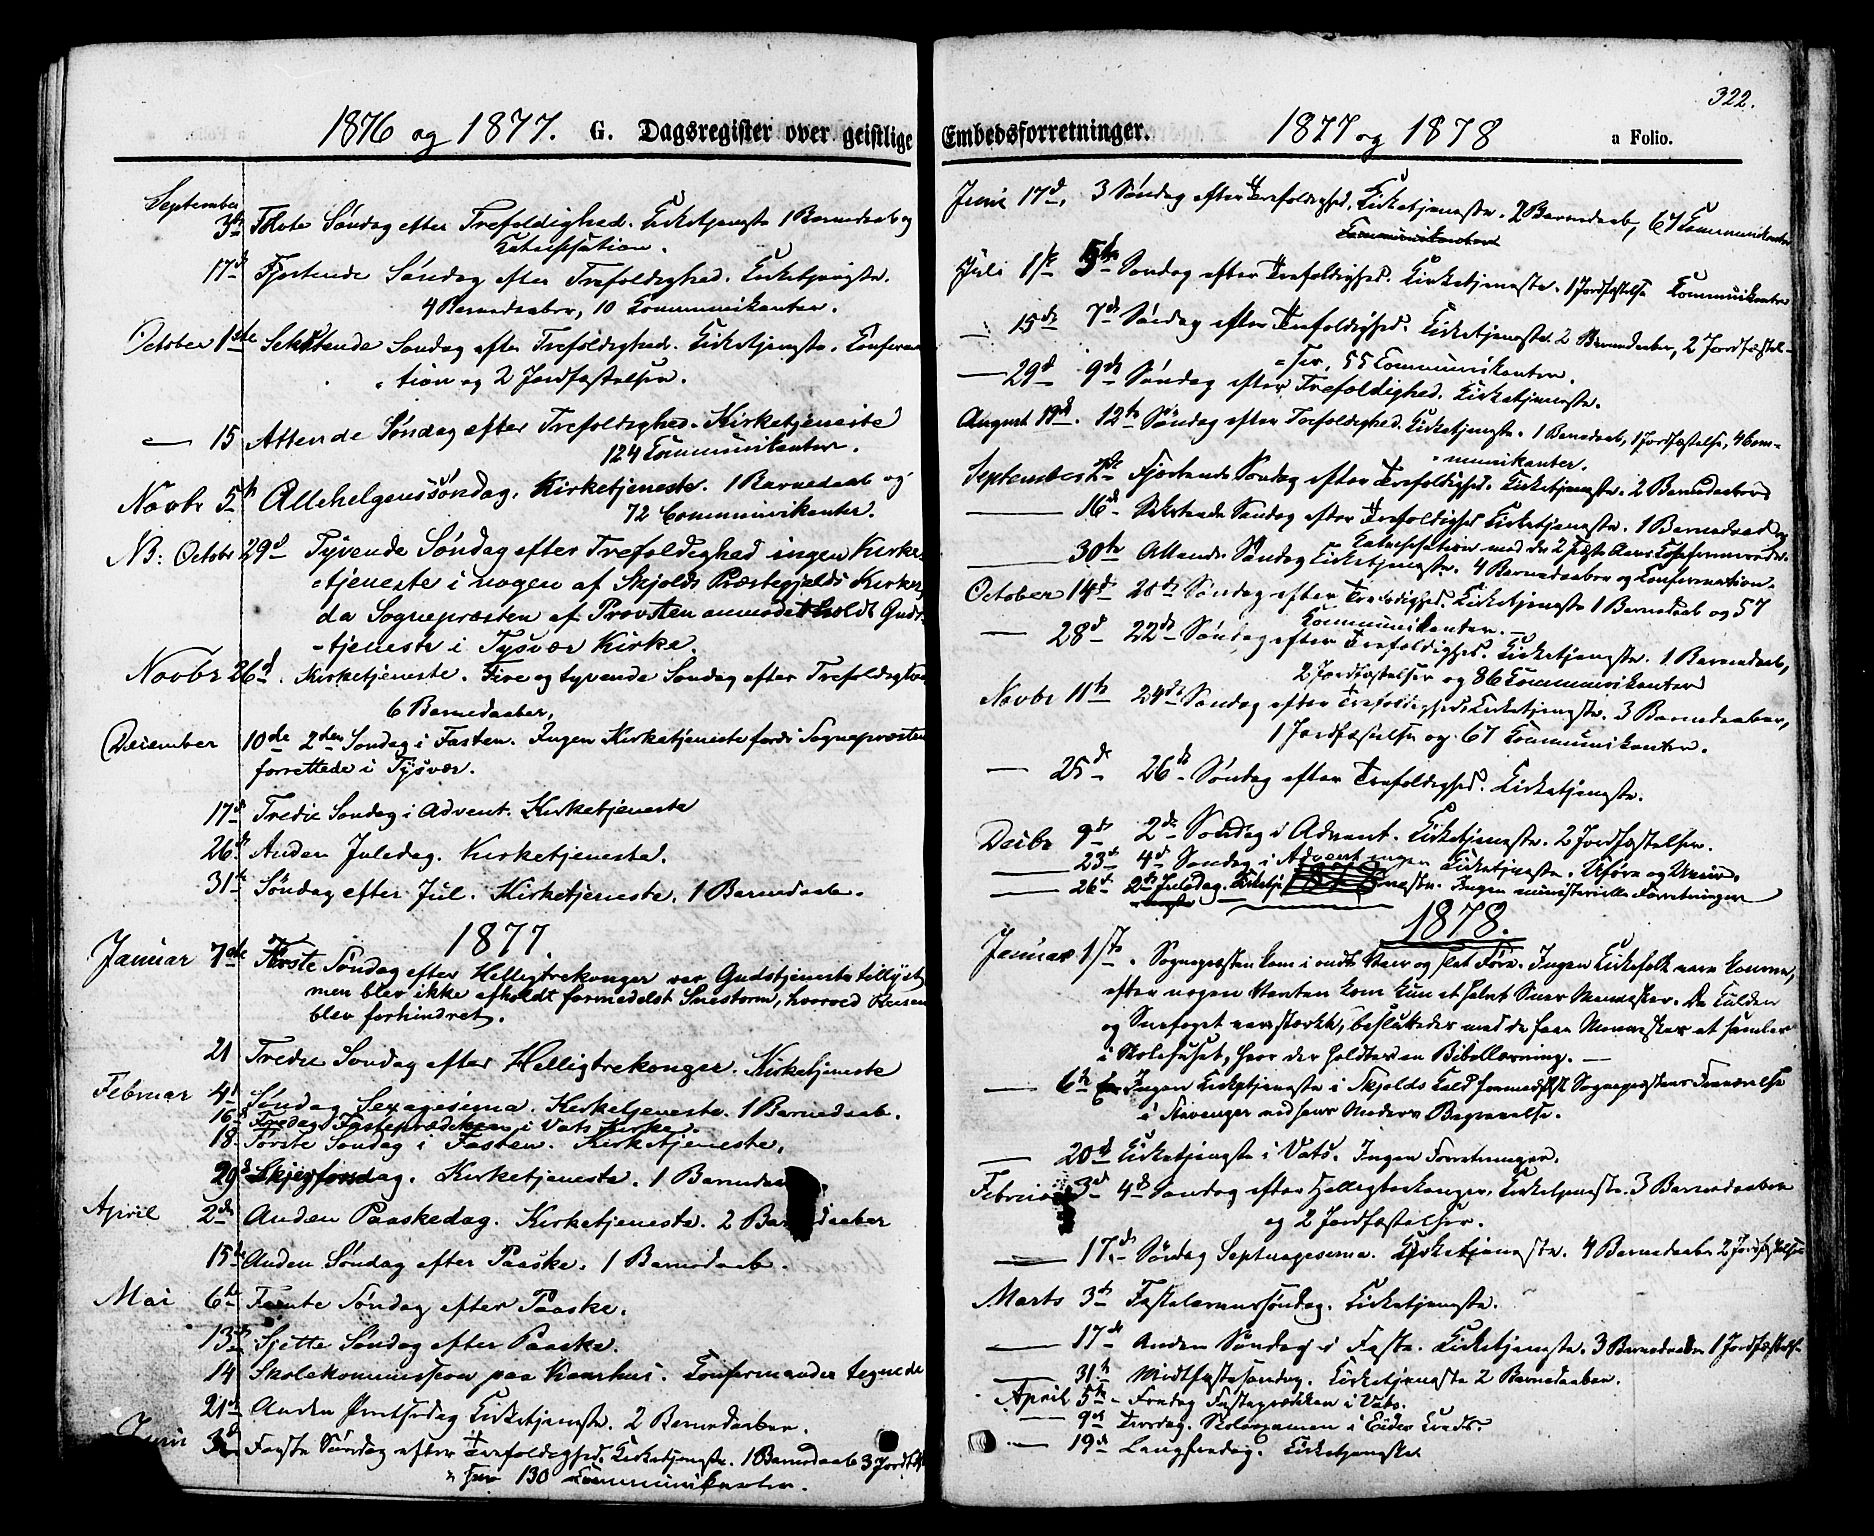 1876 og 1877. G. Dagsregister over geistlige
September
3die 12te Søndag efter Trefoldighed. Kirketjeneste 1 Barnedaab og
Katechisation.
17d Fjortende Søndag efter Trefoldighed. Kirketjeneste.
4 Barnedaaber, 10 Communikanter.
October 1ste Sekstende Søndag efter Trefoldighed. Kirketjeneste. Confirma-
tion og 2 Jordfæstelser.
— 15 Attende Søndag efter Trefoldighed. Kirketjeneste
124 Communikanter.
Novbr 5te Allehelgenssøndag. Kirketjeneste. 1 Barnedaab og
72 Communikanter.
NB: Octobr 29d Tyvende Søndag efter Trefoldighed ingen Kirke-
tjeneste i nogen af Skjolds Præstegjelds Kirker,
da Sognepræsten af Provsten anmodet holdt Guds-
tjeneste i Tysvær Kirke.
Novbr 26d. Kirketjeneste. Fire og tyvende Søndag efter Trefoldighed
6 Barnedaaber,
December 10de 2den Søndag i Fasten. Ingen Kirketjeneste fordi Sognepræsten
forrettede i Tysvær.
17d Tredie Søndag i Advent. Kirketjeneste
26d Anden Juledag. Kirketjeneste.
31te Søndag efter Jul. Kirketjeneste. 1 Barnedaab.
1877.
Januar 7de Første Søndag efter Helligtrekonger var Gudstjeneste tillyst,
men blev ikke afholdt formedelst Snestorm, hvorved Reisen
blev forhindret.
21 Tredie Søndag efter Helligtrekonger. Kirketjeneste
Februar 4d Søndag Sexagesima. Kirketjeneste. 1 Barnedaab.
16d Fredag Fasteprædiken i Vats Kirke.
18. Første Søndag i Fasten. Kirketjeneste.
29d Skjærtorsdag. Kirketjeneste. 1 Barnedaab
April 2den Anden Paaskedag. Kirketjeneste. 2 Barnedaaber
15de Anden Søndag efter Paaske. 1 Barnedaab.
Mai 6te Femte Søndag efter Paaske.
13de Sjette Søndag efter Paaske.
14 Skolekommission paa Knarhus. Confirmander tegnede
21de Anden Pintsedag Kirketjeneste. 2 Barnedaaber.
Juni 3d Første Søndag efter Trefoldighed. Kirketjeneste. 1 Barnedaab 3 Jordfæst-
130 Communikanter.
322.
Embedsforretninger. 1877 og 1878 a Folio.
Juni 17d. 3 Søndag efter Trefoldighed. Kirketjeneste. 2 Barnedaab, 67 Kommunikanter
Kommunikanter
Juli 1ste 5te Søndag efter Trefoldighed. Kirketjeneste. 1 Jordfæstelse Kommunikanter
— 15de 7de Søndag efter Trefoldighed. Kirketjeneste. 2 Barnedaaber, 2 Jordfæstel-
ser, 55 Communikanter.
— 29d 9de Søndag efter Trefoldighed. Kirketjeneste.
August 19d. 12te Søndag efter Trefoldighed. Kirketjeneste. 1 Barnedaab, 1 Jordfæstelse, 4 Com-
munikanter.
September 2de Fjortende Søndag efter Trefoldighed. Kirketjeneste. 2 Barnedaaber
— 16d Sekstende Søndag efter Trefoldighed Kirketjeneste. 1 Barnedaab og
Katechisation med de 2 sidste Aars Konfirmerede.
— 30te Attende Søndag Kirketjeneste. 4 Barnedaaber og Konfirmation.
October 14d 20de Søndag efter Trefoldighed. Kirketjeneste 1 Barnedaab og 57
Kommunikanter.
— 28d 22de Søndag efter Trefoldighed. Kirketjeneste. 1 Barnedaab,
2 Jordfæstelser og 86 Kommunikanter
Novbr 11te 24de Søndag efter Trefoldighed. Kirketjeneste. 3 Barnedaaber,
1 Jordfæstelse og 67 Kommunikanter.
— 25de 26de Søndag efter Trefoldighed. Kirketjeneste.
Decbr 9de 2de Søndag i Advent. Kirketjeneste. 2 Jordfæstelser.
— 23de 4d Søndag i Advent ingen Kirketjeneste. Uføre og Uveir.
— 26te 2den Juledag. Kirketje 1878 neste. Ingen ministerielle Forretninger
1878.
Januar 1ste. Sognepræsten kom i ondt Veir og slet Føre. Ingen Kirkefolk vare komne,
efter nogen Venten kom kun et halvt Snes Mennesker. Da Kulden
og Snefoget var stærkt, besluttedes med de faa Mennesker at samles
i Skolehuset, hvor der holdtes en Bibellæsning. —
— 6te Ingen Kirketjeneste i Skjolds Kald formedelst Sognepræstens Fraværelse
i Stavanger ved hans Moders Begravelse.
— 20d Kirketjeneste i Vats. Ingen Forretninger.
Februar 3d 4d Søndag efter Helligtrekonger. Kirketjeneste. 3 Barnedaaber
og 2 Jordfæstelser.
— 17de Søndag Septuagesima. Kirketjeneste. 4 Barnedaaber 2 Jordfæstelser
Marts 3te Fastelavnssøndag. Kirketjeneste.
— 17de Anden Søndag i Faste. Kirketjeneste. 3 Barnedaaber 1 Jordfæstelse
31te Midtfastesøndag. Kirketjeneste 2 Barnedaaber.
April 5te Fredag Fasteprædiken i Vats.
— 9de Tirsdag. Skoleexamen i Eides Kreds.
— 19de Langfredag. Kirketjeneste.